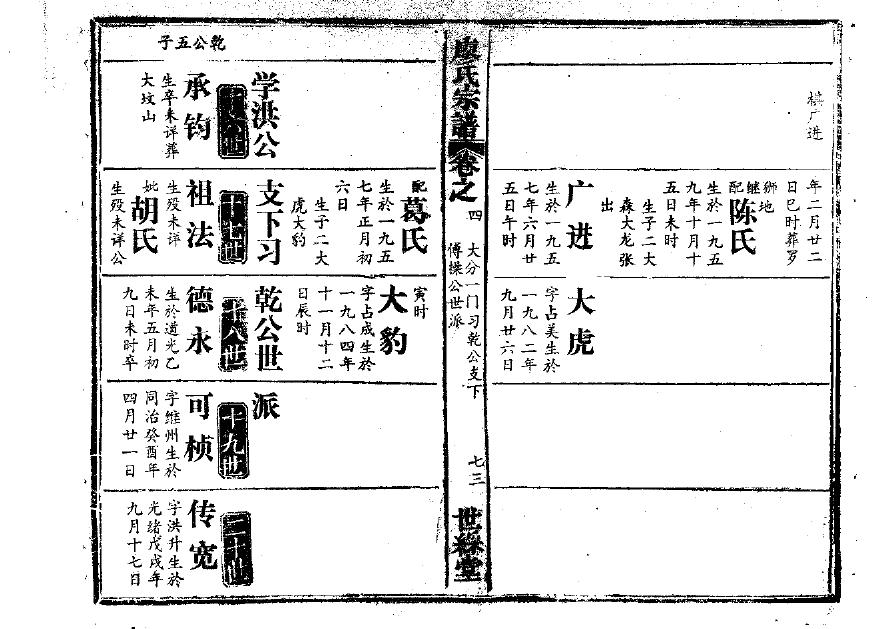 棋广进
年二月廿二
日巳时葬罗
狮地
继配
陈氏
生於一九五
九年十月十
五日未时
生子二大
森大龙张
出
广进
生於一九五
七年六月廿
五日午时
大虎
字占美生於
一九八二年
九月廿六日
廖氏宗譜
卷之四
大分一门习乾公支下
傅操公世派
七三
世綵堂
配
葛氏
生於一九五
七年正月初
六日
生子二大
虎大豹
寅时
大豹
字占成生於
一九八四年
十一月十二
日辰时
学洪公
支下习
乾公世
派
乾公五子
十六世
承钧
生卒未详葬
大坟山
十七世
祖法
生殁未详
妣
胡氏
生殁未详公
十八世
德永
生於道光乙
未年五月初
九日未时卒
十九世
可桢
字维州生於
同治癸酉年
四月廿一日
二十世
传宽
字洪升生於
光绪戊戌年
九月十七日